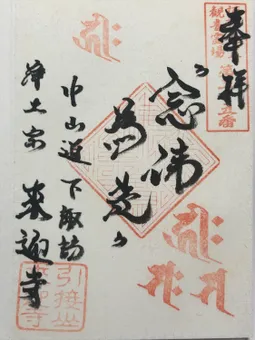 奉拝
念佛
為先
中山道 下諏訪
浄土宗 来迎寺
引接山
来迎寺